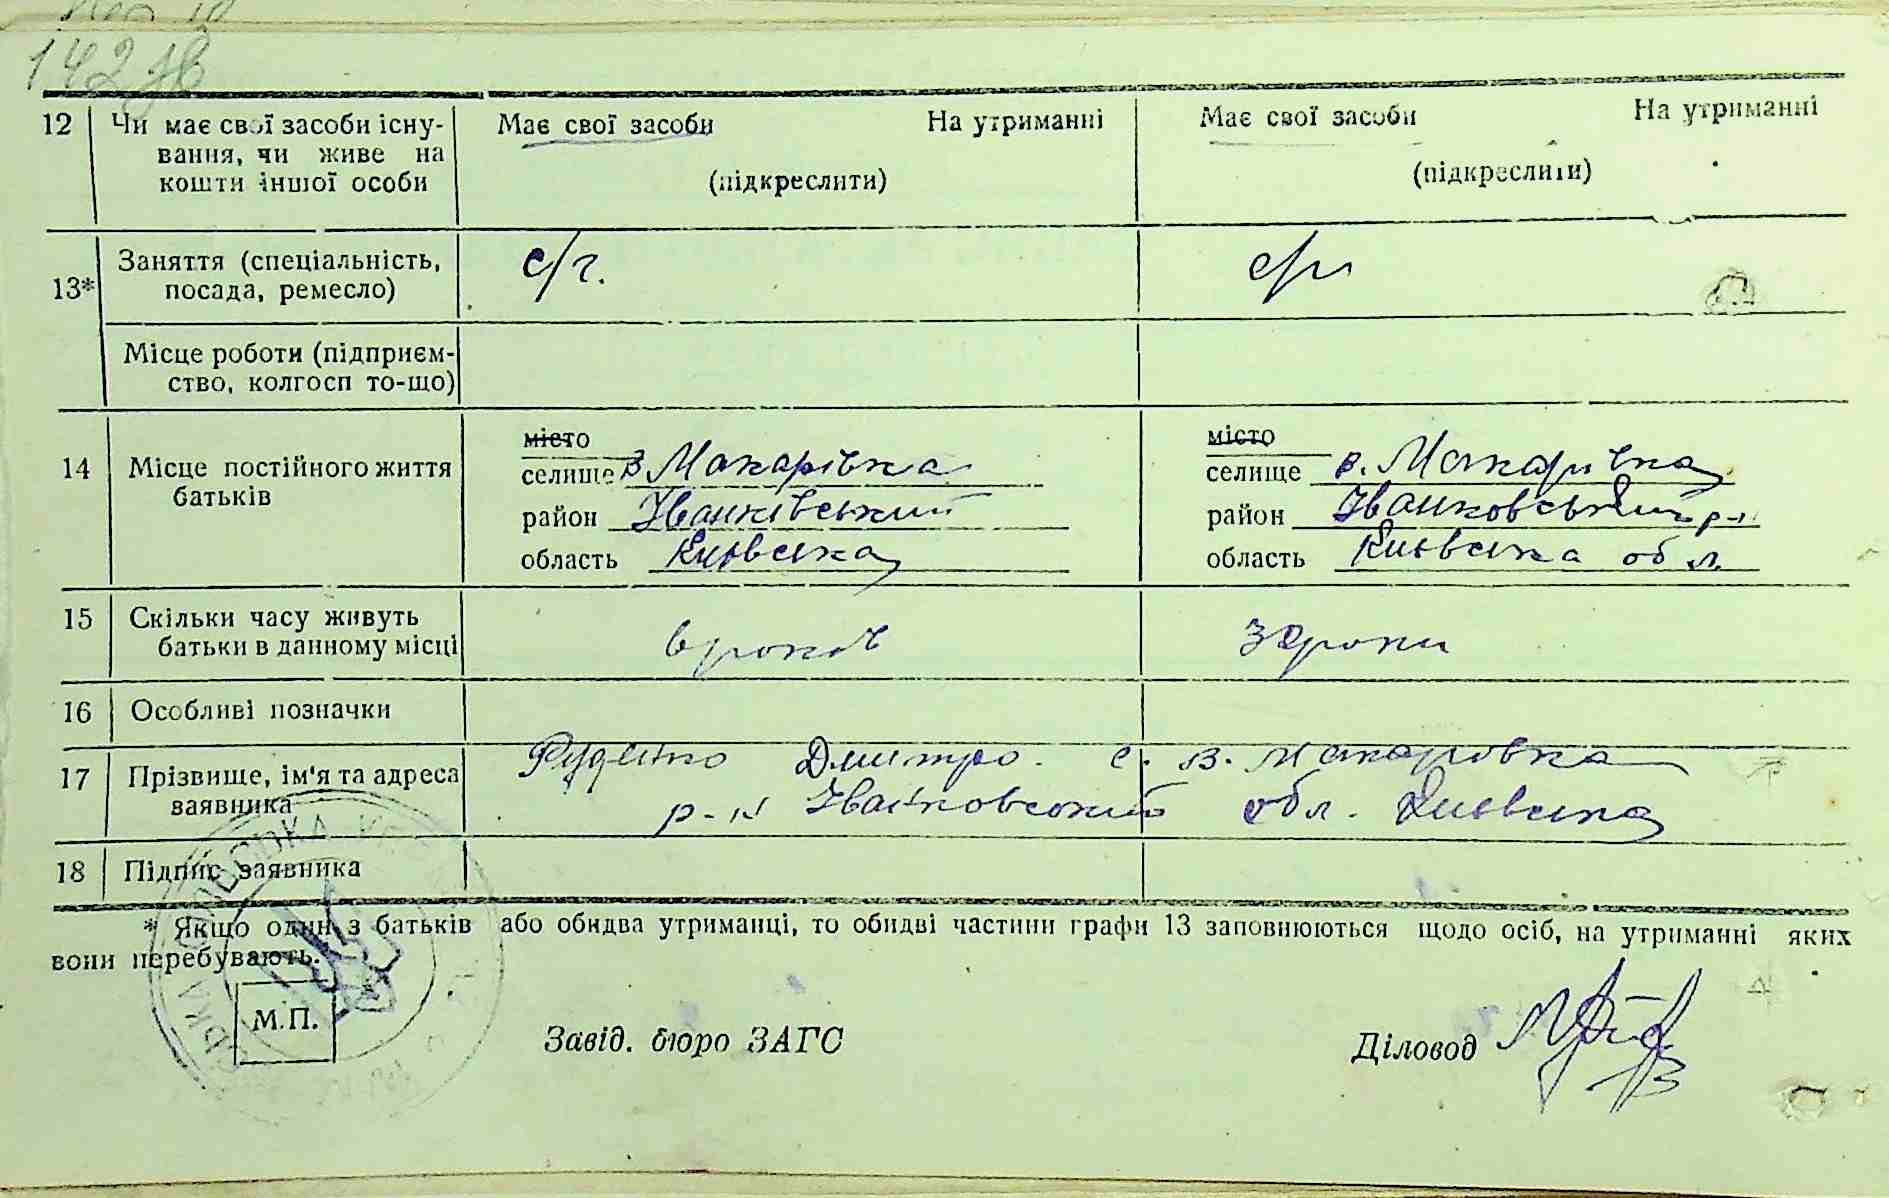 142
12 Чи має свої засоби існу- Має свої засоби На утриманні Має свої засоби На утриманні
вання, чи живе на
кошти іншої особи (підкреслити) (підкреслити)
13* Заняття (спеціальність, с/г.
посада, ремесло)
Місце роботи (підприєм-
ство, колгосп то-що)
місто місто
14 Місце постійного життя селище В Макарівка селище в. Макарівка
батьків район Іванківський район Іванковський р-н
область Київська область Київська обл.
15 Скільки часу живуть років роки
батьки в данному місці
16 Особливі позначки
17 Прізвище, ім'я та адреса Руденко Дмитро. с. В. Макаровка
заявника р-н Іванковський обл. Київська
18 Підпис заявника
* Якщо один з батьків або обидва утриманці, то обидві частини графи 13 заповнюються щодо осіб, на утриманні яких
вони перебувають.
М.П. Завід. бюро ЗАГС Діловод